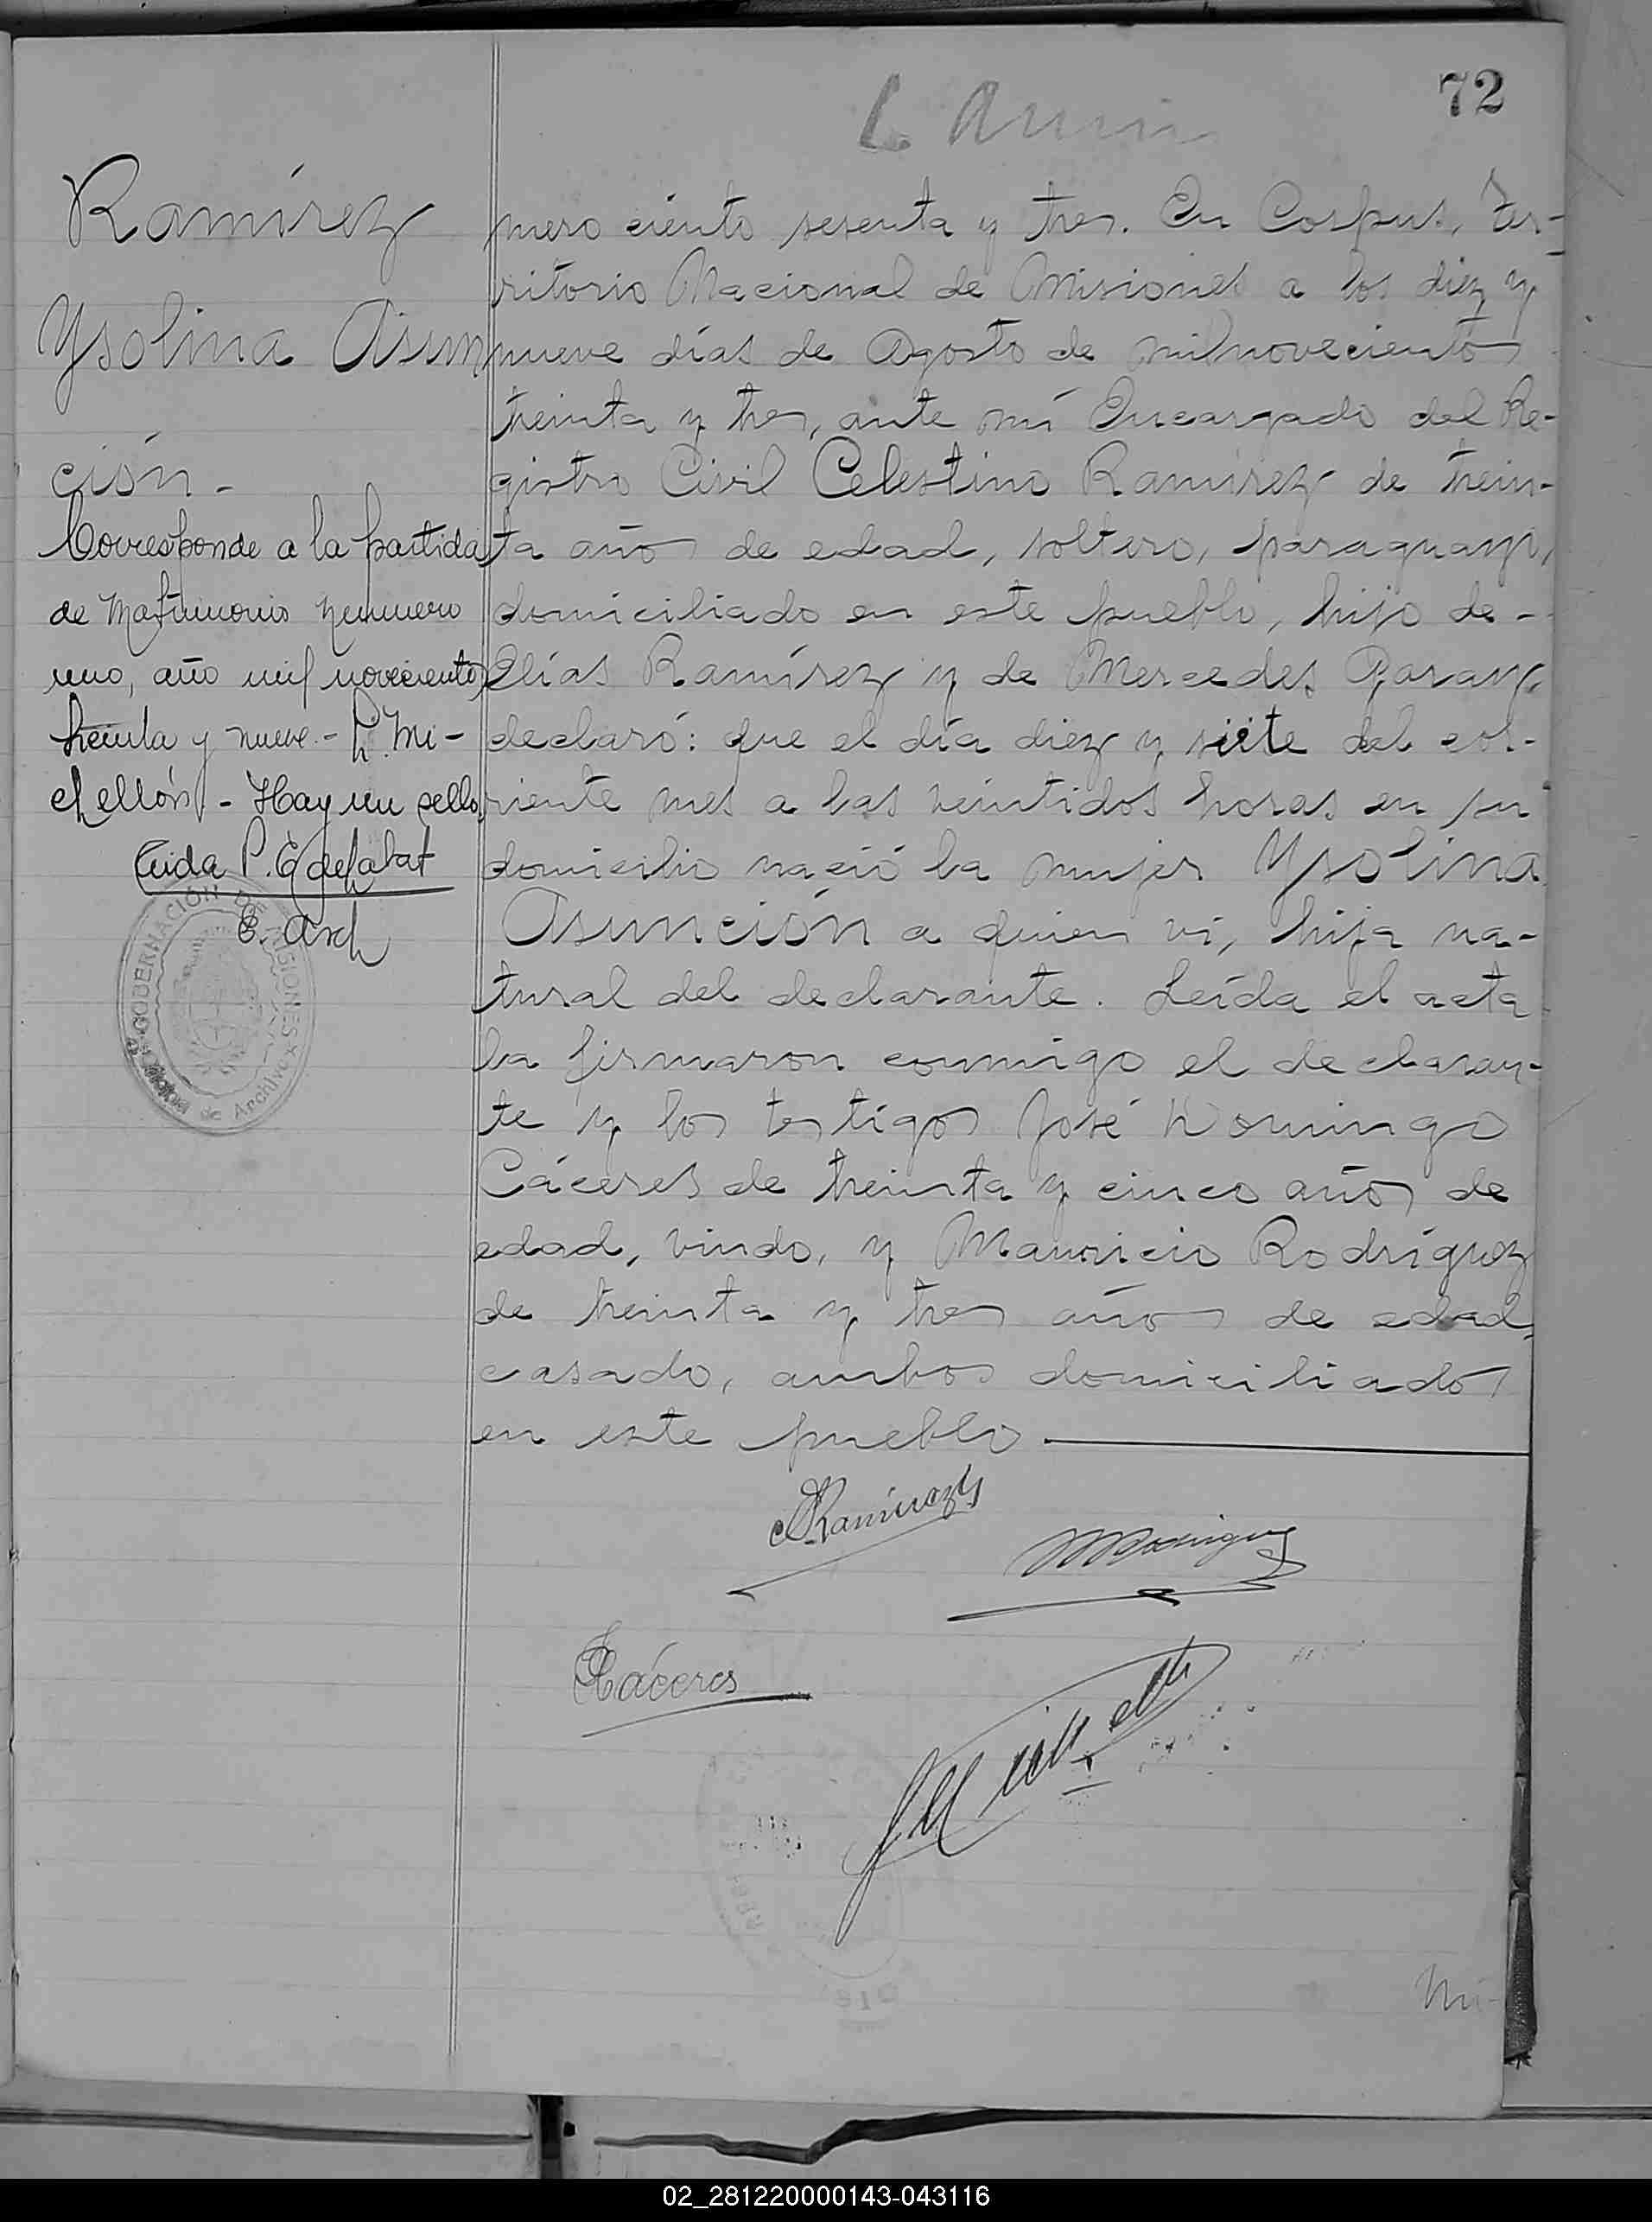 72
Ramírez
Ysolina Asun
ción-
Corresponde a la partida
de Matrimonio número
uno, año mil novecientos
treinta y nueve.- P. Mi-
chellón.- Hay un sello.
E. Asch
GOBERNACIÓN DE MISIONES
de Archivo
mero ciento sesenta y tres. En Corpus, Ter-
ritorio Nacional de Misiones a los diez y
nueve días de Agosto de mil novecientos
treinta y tres, ante mí Encargado del Re-
gistro Civil Celestino Ramírez de trein-
ta años de edad, soltero, paraguayo,
domiciliado en este pueblo, hijo de -
Elías Ramírez y de Mercedes Garay,
declaró: que el día diez y siete del cor-
riente mes a las veintidos horas en su
domicilio nació la mujer Ysolina
Asunción a quien ví, hija na-
tural del declarante. Leída el acta
la firmaron conmigo el declaran-
te y los testigos José Domingo
Cáceres de treinta y cinco años de
edad, viudo, y Mauricio Rodríguez
de treinta y tres años de edad,
casado, ambos domiciliados
en este pueblo
C. Ramirez
M Rodriguez
Cáceres
02_281220000143-043116